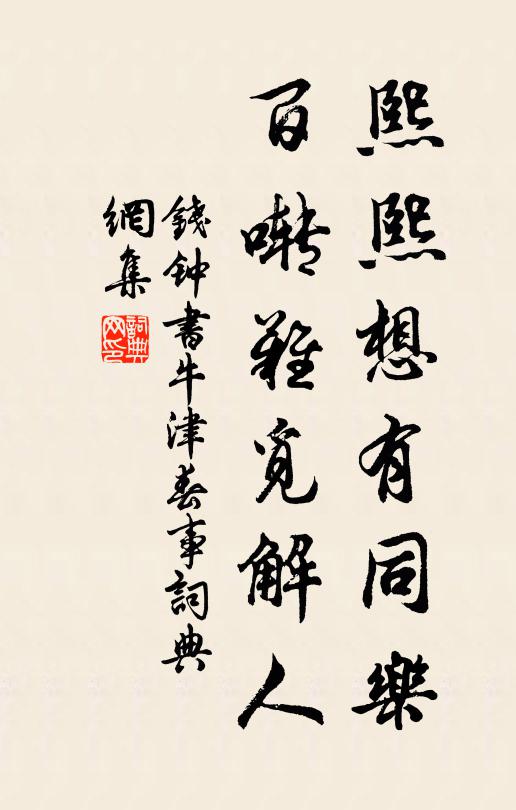 熙熙想有同樂
百囀難覓解人
錢鈡書牛津春事詞典
網集
詞典網印